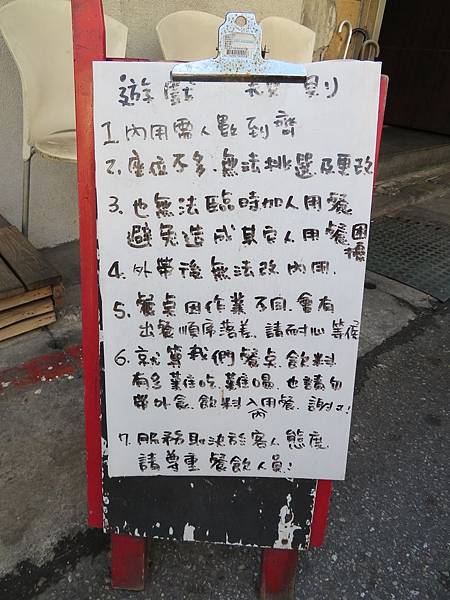 遊戲規則
1.內用需人數到齊
2.座位不多.無法挑選及更改
3.也無法臨時加人用餐
避免造成其客人用餐困擾
4.外帶後無法改內用.
5.餐桌因作業不同.會有
出餐順序落差.請耐心等候
6.就算我們餐桌.飲料
有多難吃.難喝.也請勿
帶外食.飲料入內用餐.謝謝!
7.服務取決於客人態度.
請尊重餐飲人員!